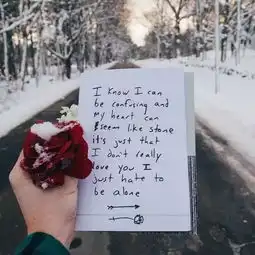 I know I can
be confusing and
my heart can
seem like stone
it's just that
I don't really
love you I
just hate to
be alone